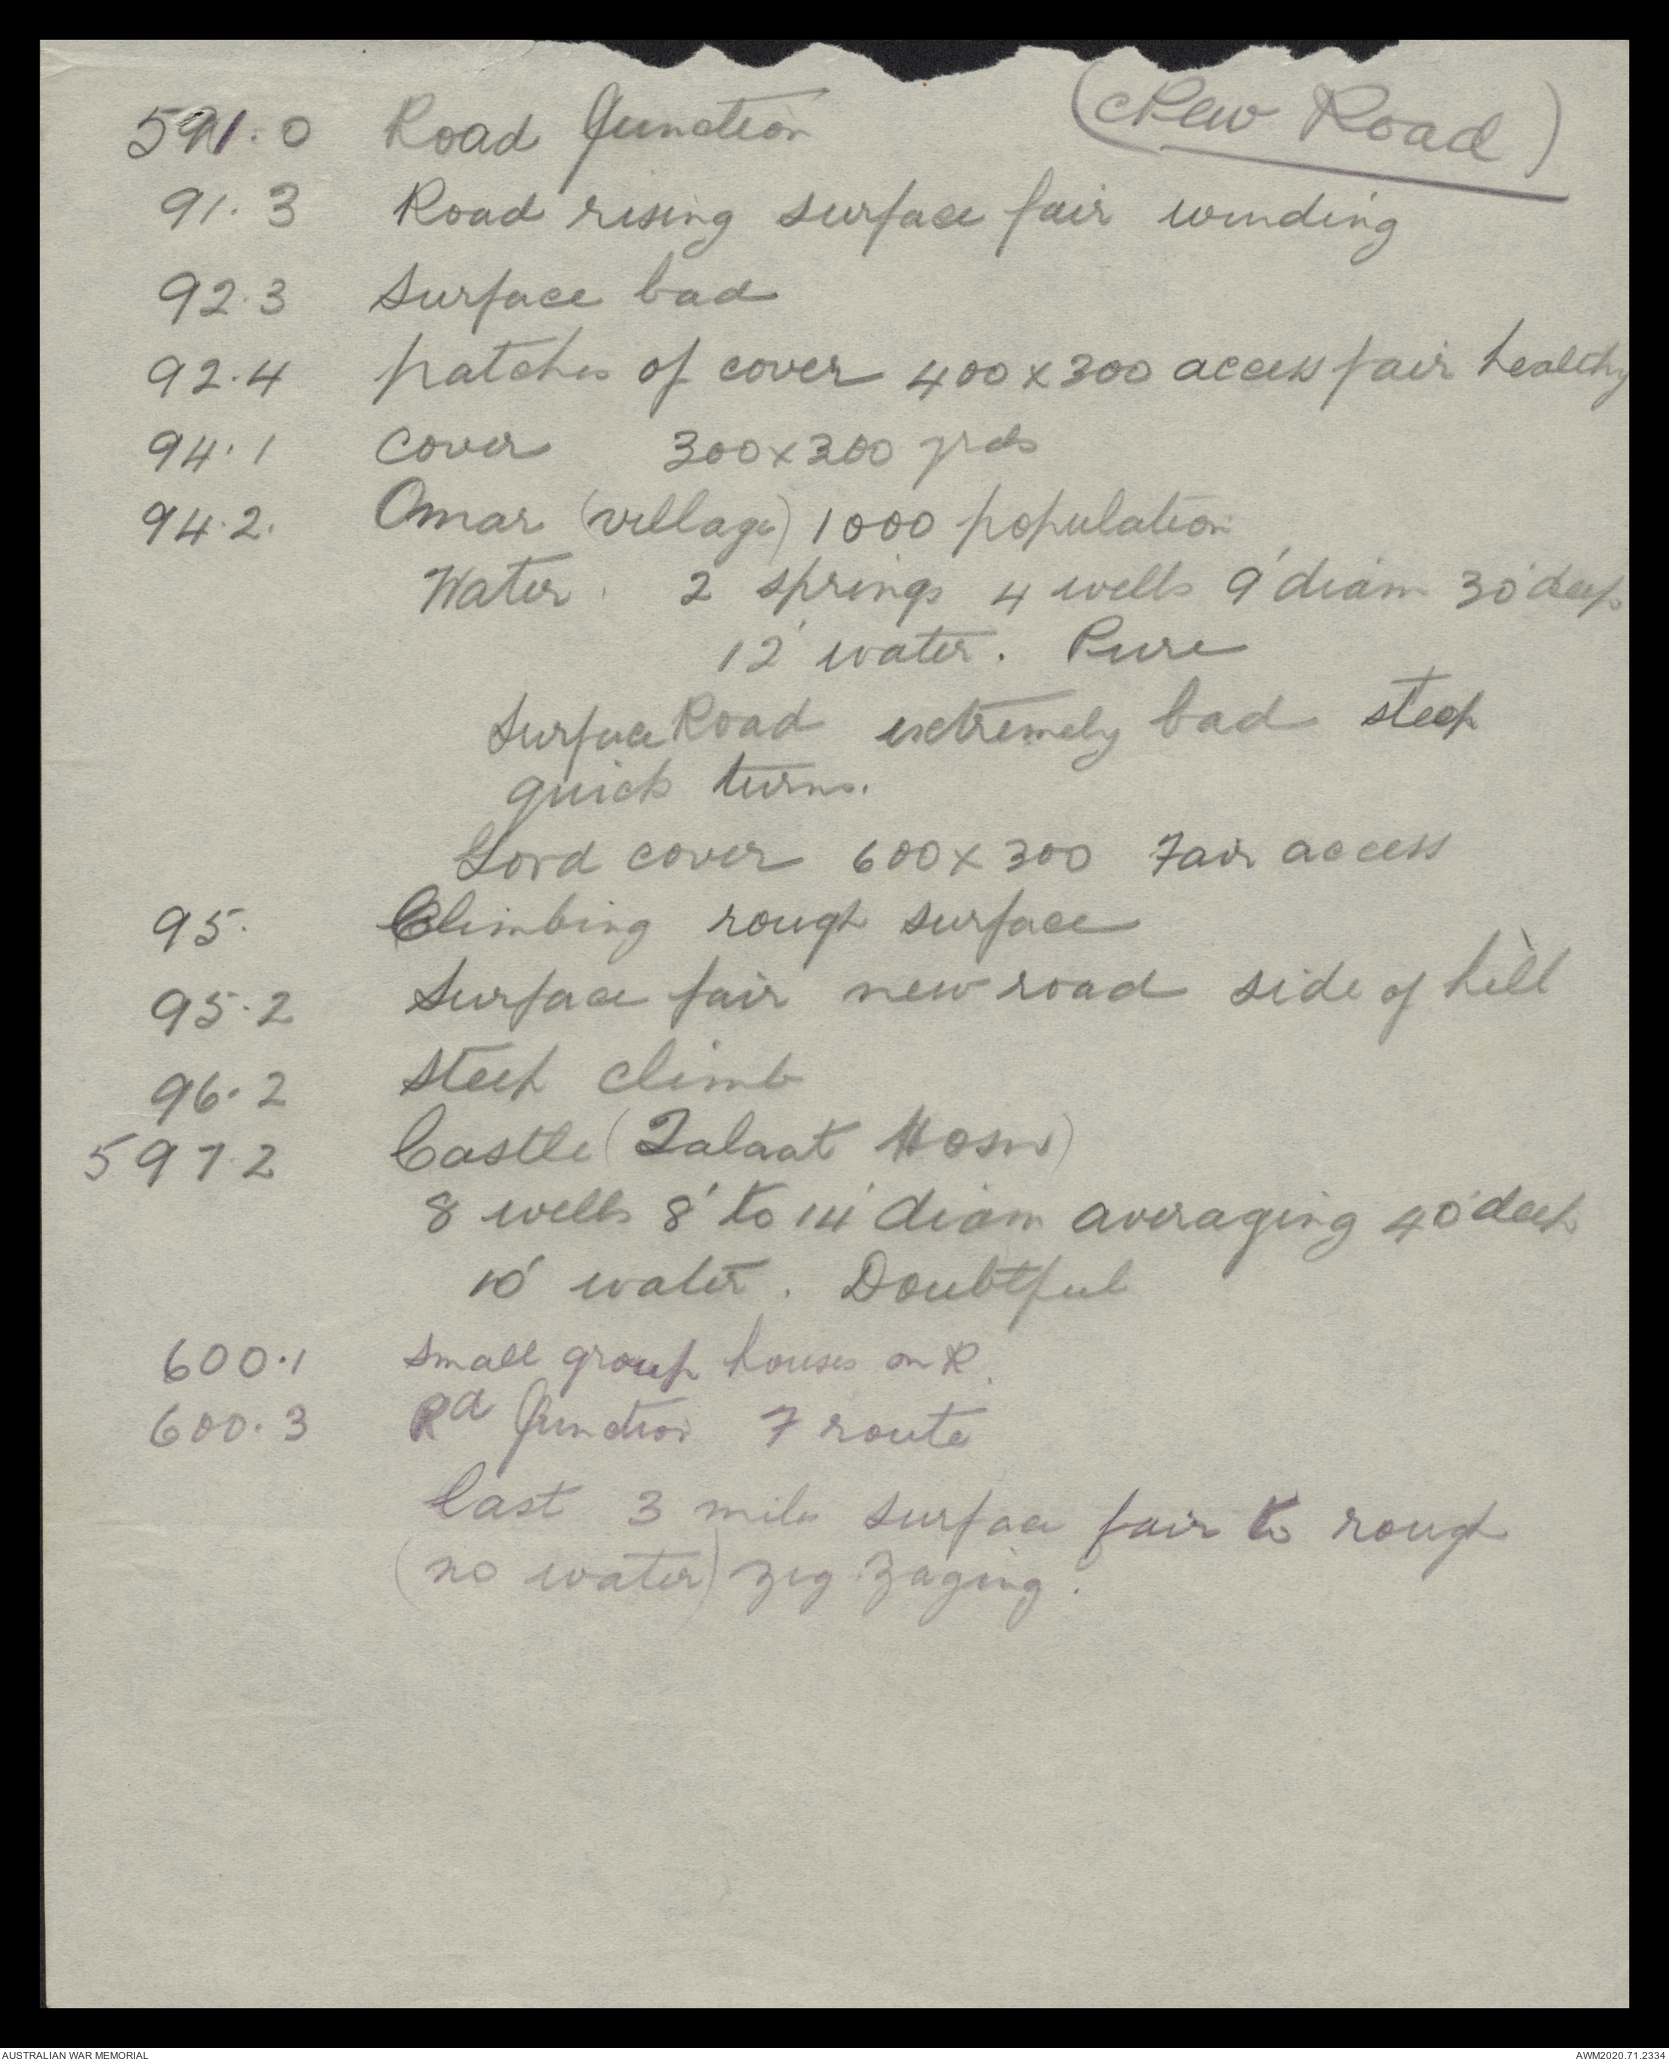 591.0 Road Junction (New Road)
91.3 Road rising surface fair winding
92.3 Surface bad
92.4 patches of cover 400 x 300 access fair healthy
94.1 Cover 300 x 300 yrds
94.2. Omar (village) 1000 population
Water. 2 springs 4 wells 9' diam 30' deep
12' water. Pure
Surface Road extremely bad steep
quick turns.
Good cover 600 x 300 Fair access
95. Climbing rough surface
95.2 Surface fair new road side of hill
96.2 Steep climb
597.2 Castle (Talaat Hosn)
8 wells 8' to 14' diam averaging 40' deep
10' water. Doubtful
600.1 Small group houses on R.
600.3 Rd Junction 7 route
Last 3 miles surface fair to rough
(no water) zig zaging.
AUSTRALIAN WAR MEMORIAL AWM2020.71.2334